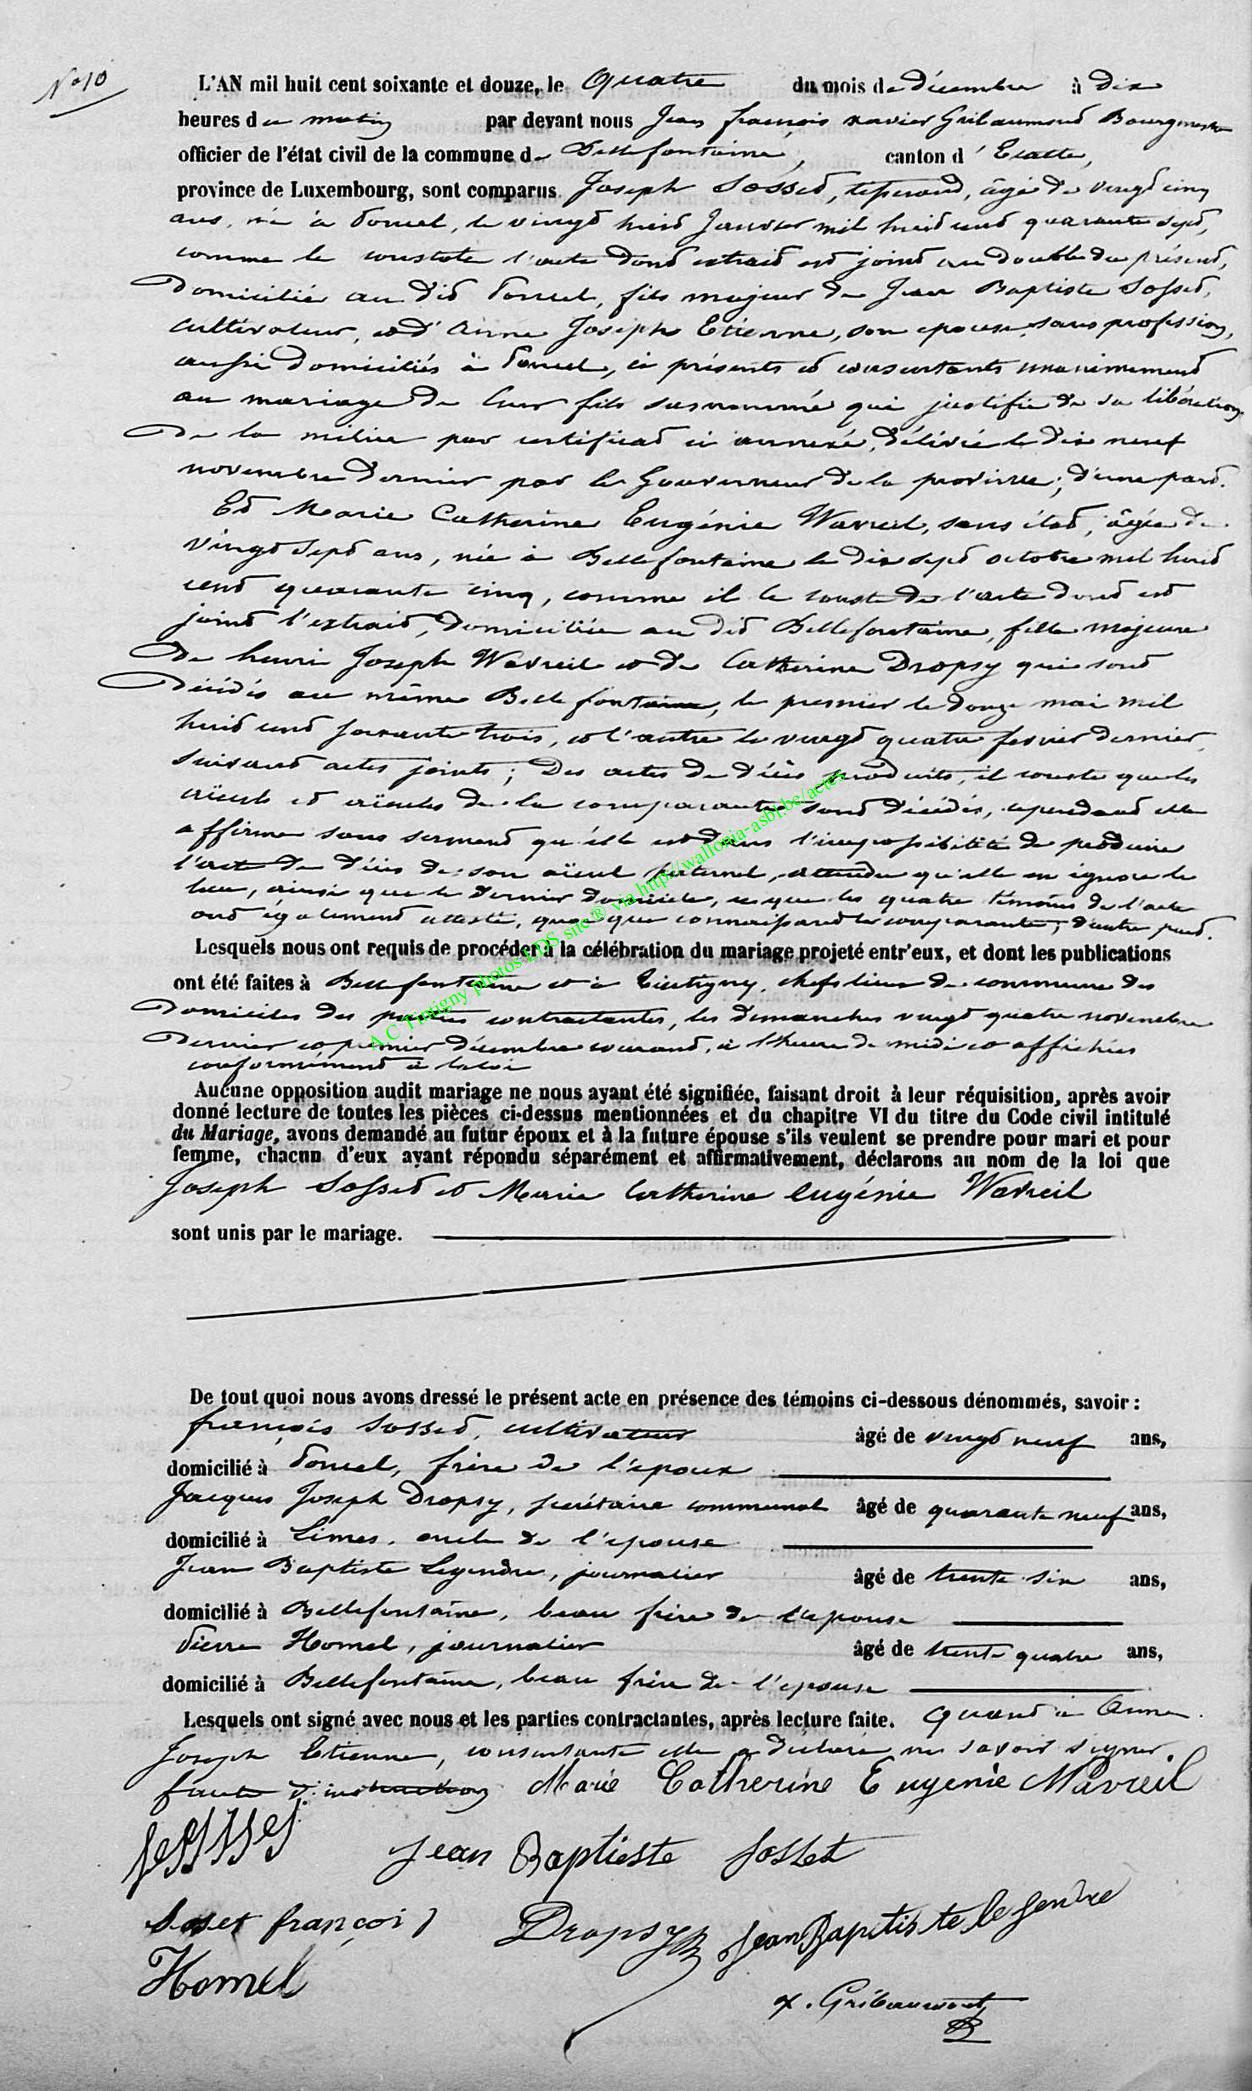 N° 10
L'AN mil huit cent soixante et douze, le quatre du mois de décembre à dix
heures du matin par devant nous Jean françois xavier Gribaumont Bourgmestre
officier de l'état civil de la commune de Bellefontaine, canton d'Etalle,
province de Luxembourg, sont comparus Joseph Sosset, tisserand, âgé de vingt cinq
ans, né à Poncel, le vingt huit Janvier mil huit cent quarante sept,
comme le constate l'acte dont extrait est joint au double du présent,
Domicilié au dit Poncel, fils majeur de Jean Baptiste Sosset,
cultivateur, et d'Anne Joseph Etienne, son epouse sans profession,
aussi domiciliés à Poncel, ci présents et consentants unanimement
au mariage de leur fils susnommé qui justifie de sa libération
De la milice par certificat ci annexé, délivré le dix neuf
novembre dernier par le Gouverneur de la province; d'une part.
Et Marie Catherine Eugénie Wavreil, sans état, âgée de
vingt sept ans, née à Bellefontaine le dix sept octobre mil huit
cent quarante cinq, comme il le conste de l'acte dont est
joint l'extrait, domiciliée au dit Bellefontaine, fille majeure
De henri Joseph Wavreil et de Catherine Dropsy qui sont
Décédés au même Bellefontaine, le premier le douze mai mil
huit cent soixante trois, et l'autre le vingt quatre fevrier dernier,
suivant actes joints; Des actes de décès produits, il conste que les
aïeuls et aïeules de la comparante sont décédés, cependant elle
affirme sous serment qu'elle est dans l'impossibilité de produire
l'acte de décès de son aïeul paternel, attendu qu'elle en ignore le
lieu, ainsi que le dernier domicile, ce que les quatre témoins de l'acte
ont également attesté, quoique connaissant la comparante; d'autre part.
Lesquels nous ont requis de procéder à la célébration du mariage projeté entr'eux, et dont les publications
ont été faites à Bellefontaine et à Tintigny, chefs lieux de commune des
Domiciles des parties contractantes, les dimanches vingt quatre novembre
Dernier et premier décembre courant, à l'heure de midi et affichées
conformément à la loi
Aucune opposition audit mariage ne nous ayant été signifiée, faisant droit à leur réquisition, après avoir
donné lecture de toutes les pièces ci-dessus mentionnées et du chapitre VI du titre du Code civil intitulé
du Mariage, avons demandé au futur époux et à la future épouse s'ils veulent se prendre pour mari et pour
femme, chacun d'eux ayant répondu séparément et affirmativement, déclarons au nom de la loi que
Joseph Sosset et Marie Catherine Eugénie Wavreil
sont unis par le mariage.
De tout quoi nous avons dressé le présent acte en présence des témoins ci-dessous dénommés, savoir :
françois Sosset, cultivateur âgé de vingt neuf ans,
domicilié à Poncel, frère de l'epoux
Jacques Joseph Dropsy, secrétaire communal âgé de quarante neuf ans,
domicilié à Limes, oncle de l'epouse
Jean Baptiste Legendre, journalier âgé de trente six ans,
domicilié à Bellefontaine, beau frère de l'epouse
Pierre Homel, journalier âgé de trente quatre ans,
domicilié à Bellefontaine, beau frère de l'epouse
Lesquels ont signé avec nous et les parties contractantes, après lecture faite. Quant à Anne
Joseph Etienne, consentante elle a déclaré ne savoir signer.
faute d'instruction Marie Catherine Eugenie Wavreil
Jean Baptiste Sosset
Soset françois Dropsy JJ Jean Baptiste le Gendre
Homel
x. Gribaumont
A.C Tintigny photos LDS site ® via http://wallonia-asbl.be/actes